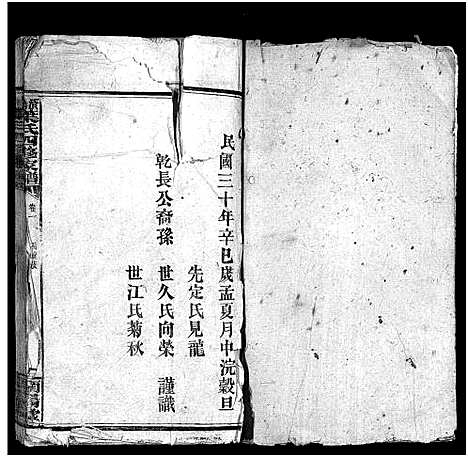 民國三十年辛巳歲孟夏月中浣穀旦
先定氏見龍
乾長公裔孫 世久氏向榮 謹識
世江氏菊秋
葉氏四修支譜
卷一
南陽堂